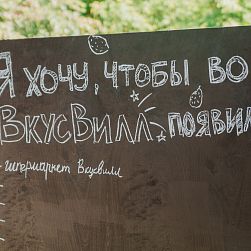 Я ХОЧУ, ЧТОБЫ ВО
ВКУСВИЛЛ ПОЯВИЛ
- гипермаркет Вкусвилл